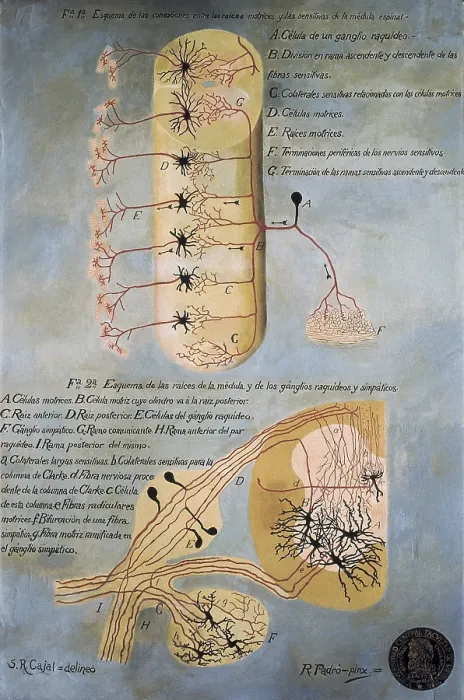 Fª 1ª Esquema de las conexiones entre las raices motrices y las sensitivas de la médula espinal.-
A. Célula de un ganglio raquideo.-
B. División en rama ascendente y descendente de las
fibras sensitivas.
C. Colaterales sensitivas relacionadas con las células motrices
D. Células motrices.
E. Raices motrices.
F. Terminaciones periféricas de los nervios sensitivos.
G. Terminación de las ramas sensitivas ascendente y descendente
G
D
A
E
B
C
G
F
Fª 2ª Esquema de las raices de la médula, y de los ganglios raquideos y simpáticos.
A. Células motrices. B. Célula motriz cuyo cilindro va á la raiz posterior.
C. Raiz anterior. D. Raiz posterior. E. Células del ganglio raquideo.
F. Ganglio simpático. G. Ramo comunicante. H. Rama anterior del par
raquideo. I. Rama posterior del mismo.
a. Colaterales largas sensitivas. b. Colaterales sensitivas para la
columna de Clarke. d. Fibra nerviosa proce
dente de la columna de Clarke. c. Célula
de esta columna. e. Fibras radiculares
motrices. f. Bifurcación de una fibra
simpática. g. Fibra motriz ramificada en
el ganglio simpático.
D
d
A
E
e
I
G
H
F
S. R. Cajal = delineó
R. Padró - pinx. =